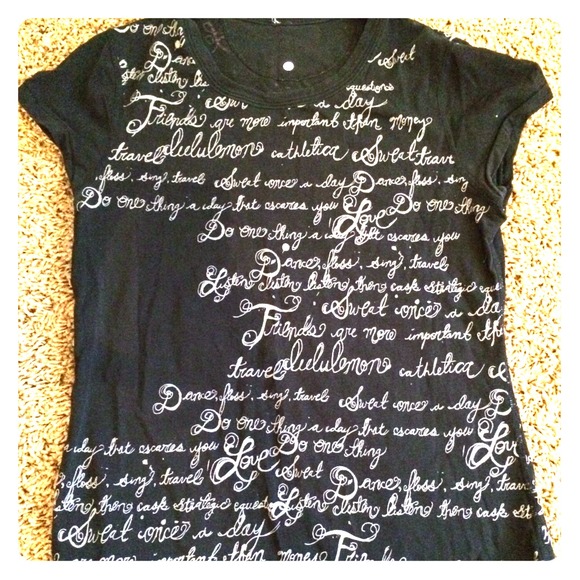 Do one thing
Dance, Sweat
listen, listen, lis
questions
Sweat once a day
Friends are more important than money
travel lululemon athletica Sweat travel
floss, sing, travel Sweat once a day Dance, floss, sing
Do one thing a day that scares you Love Do one thing
Do one thing a day that scares you
Dance, floss, sing, travel
Listen, listen, listen, then ask strategic ques
Sweat once a da
Friends are more important than
travel lululemon athletica
Dance, floss, sing, travel Sweat once a day D
Do one thing a day that scares you
a day that scares you Love Do one thing Love
floss, sing, travel Sweat Dance, floss, sing, trav
listen, then ask strategic questions Listen, listen, listen, then ask st
Sweat once a day
are more important than money Friends